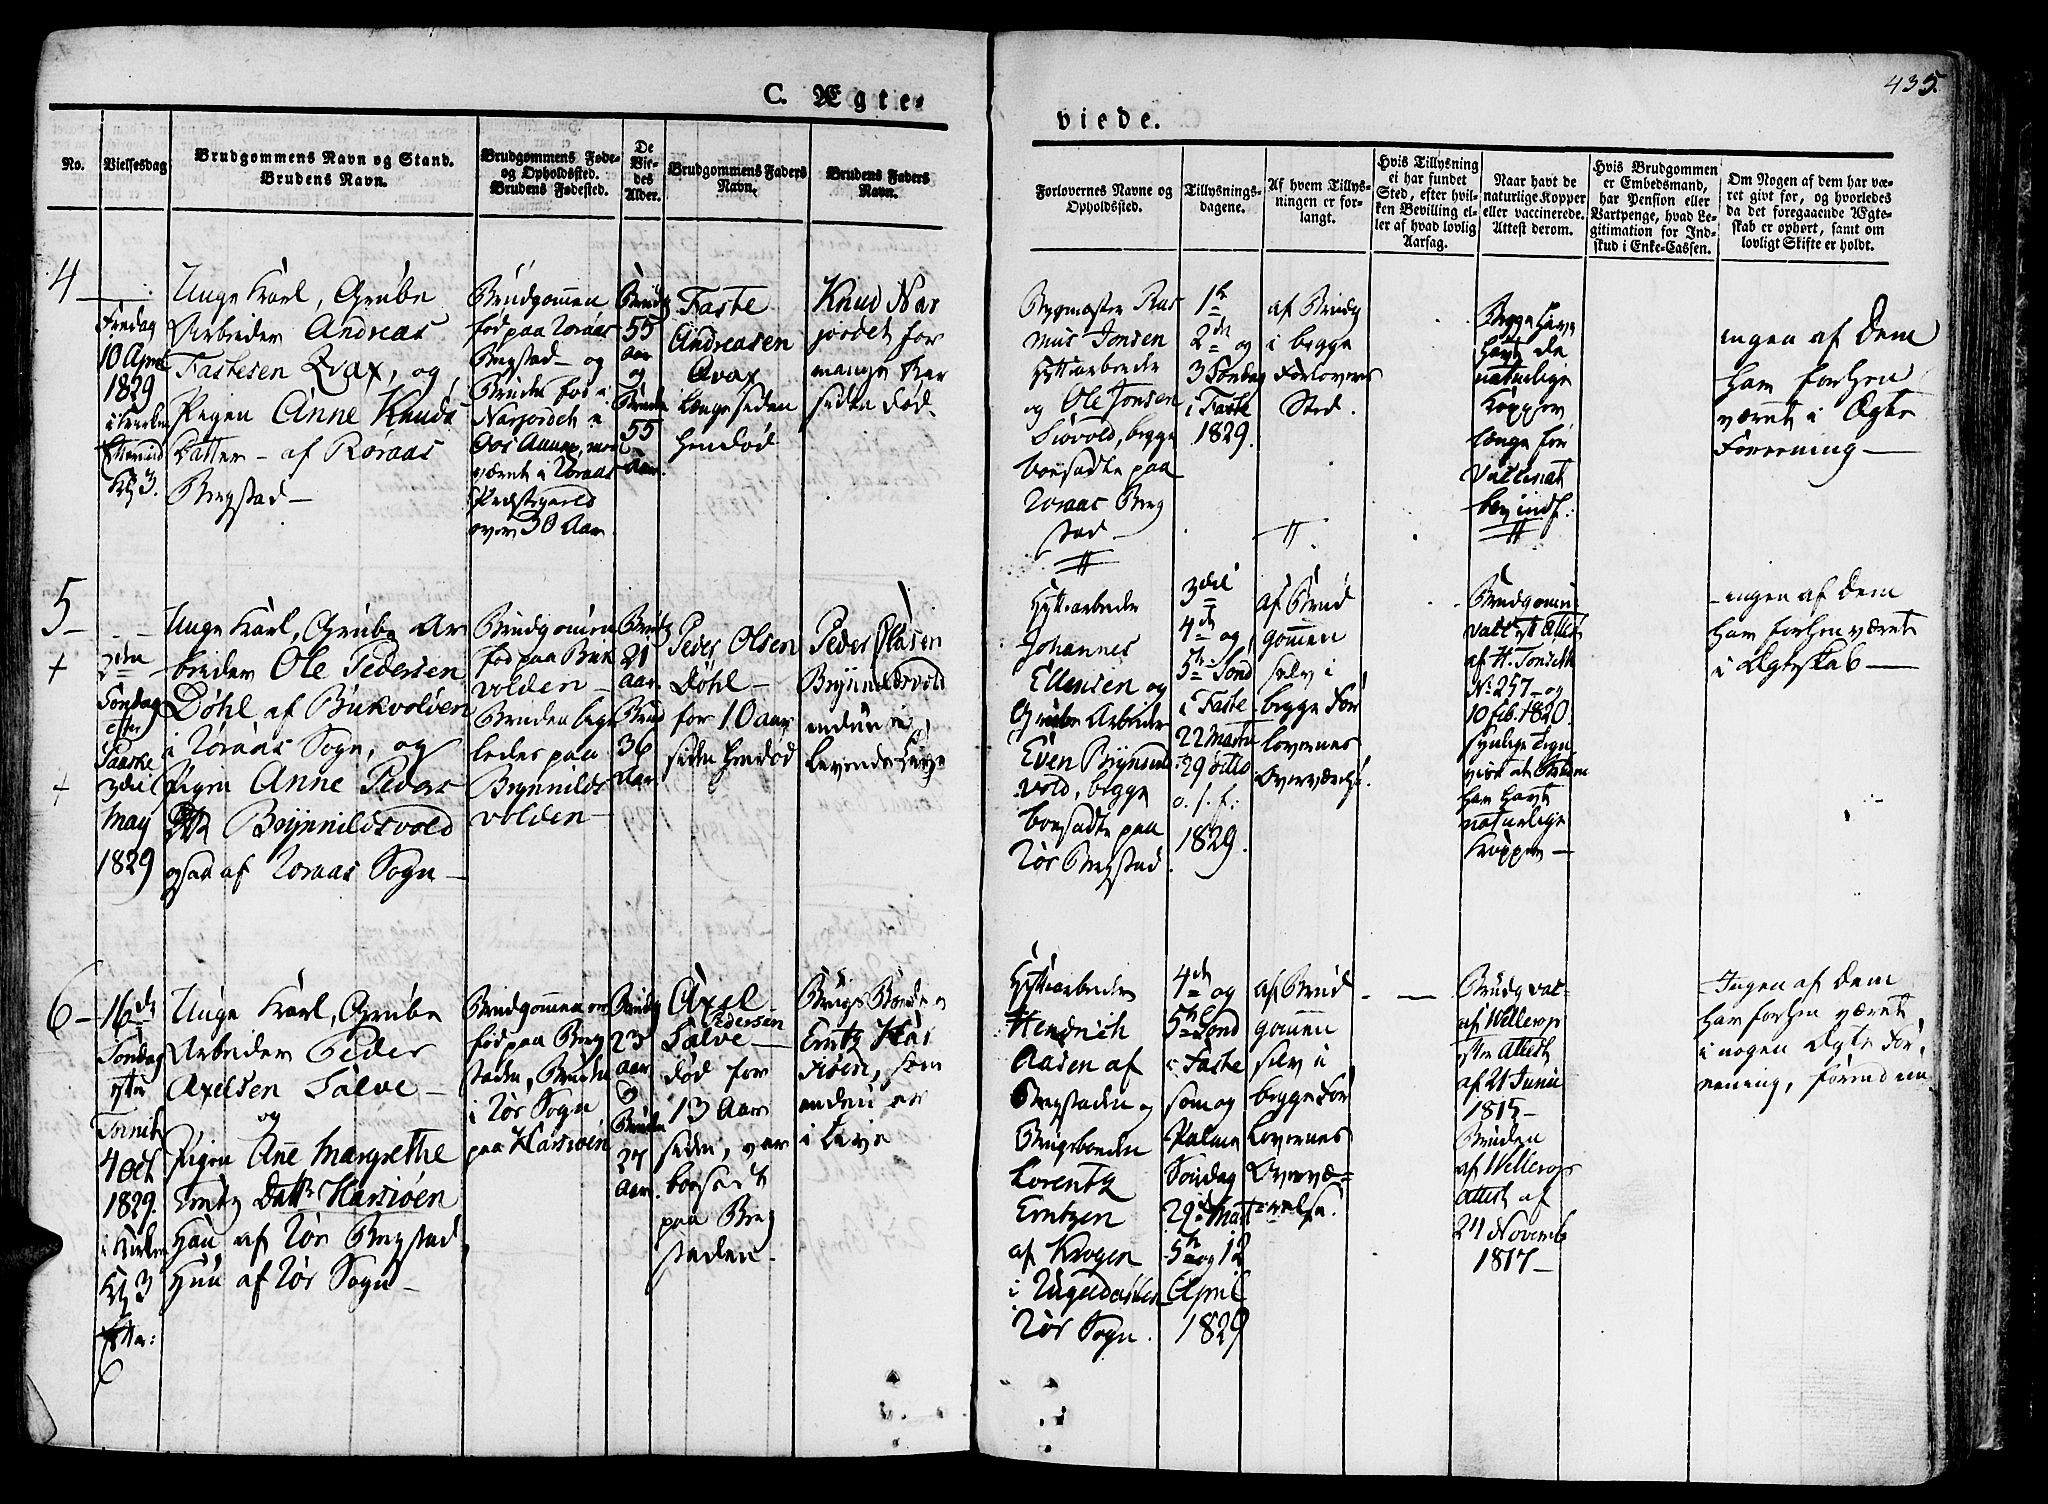 435.
C. Ægte-
viede.
No.
Vielsesdag
Brudgommens Navn og Stand.
Brudens Navn.
Brudgommens Føde-
og Opholdssted.
Brudens Fødested.
De
Vie-
des
Alder.
Brudgommens Faders
Navn.
Brudens Faders
Navn.
Forlovernes Navne og
Opholdssted.
Tillysnings-
dagene.
Af hvem Tillys-
ningen er for-
langt.
Hvis Tillysning
ei har fundet
Sted, efter hvil-
ken Bevilling el-
ler af hvad lovlig
Aarsag.
Naar havt de
naturlige Kopper
eller vaccinerede.
Attest derom.
Hvis Brudgommen
er Embedsmand,
har Pension eller
Vartpenge, hvad Le-
gitimation for Ind-
skud i Enke-Cassen.
Om Nogen af dem har væ-
ret givt før, og hvorledes
da det foregaaende Ægte-
skab er ophørt, samt om
lovligt Skifte er holdt.
4
Fredag
10 April
1829
i Kirken
Kl 3.
Unge Karl, Grube
Arbeider Andreas
Fastesen Qvax, og
Pigen Anne Knuds
Datter - af Røraas
Bergstad -
Brudgomen
fød paa Røraas
Bergstad - og
Bruden fød i
Narjordet i
Aas Annex, men
været i Røraas
Præstegield
over 30 Aar
Brudg
55
Aar
og
Bruden
55
Aar.
Faste
Andreasen
Qvax
længe siden
hendød
Knud Nar
jordet for
mange Aar
siden død.
Bygmester Ras
mus Jonsen
Hyttearbeider
og Ole Jonsen
Siøvold, begge
boesadte paa
Røraas Berg
stad -
1ste
2den og
3 Søndag
i Faste
1829.
af Brudg
i begge
Forlovers
Sted.
Begge have
havt de
naturlige
Kopper
længe før
ingen af Dem
har forhen
været i Ægte
Forening -
5 -
2den
Søndag
efter
Paaske
3die
May
1829
Unge Karl, Grube Ar
beider Ole Pedersen
Døhl af Bukvolden
i Røraas Sogn, og
Pigen Anne Peders
Dtr Brynnildsvold
ogsaa af Røraas Sogn -
Brudgomen
fød paa Buk
volden -
Bruden lige
ledes paa
Brynnilds
volden -
Brudg
21
Aar
Brud
36
Aar
Peder Olsen
Døhl -
for 10 aar
siden hendød
Peder Olasen
Brynnildsvold
endnu i
levende Live
Hyttearbeider
Johannes
Ellensen og
Grube Arbeider
Even Brynilds
vold, begge
boesadte paa
Rør Bergstad.
3die
4de og
5te Sønd
i Faste
22 Martii
29 ditto
o. s. f.
1829.
af Brud
gommen
selv i
begge For
lovernes
Overværelse.
Brudgomm
vatt: Attest
af H. Tønseth
No 257 - og
10 feb. 1820.
synlige Tegn
viste at Bruden
har havt
naturlige
Kopper -
- ingen af dem
har forhen været
i Ægteskab -
6 -
16de
Søndag
efter
Trinit
4 Oct
1829.
i Kirken
Kl 3
Efter:
Unge Karl, Grube
Arbeider Peder
Axelsen Tålve -
og
Pigen Ane Margrethe
Erntz Dattr Harsiøen
Han af Rør Bergstad
Hun af Rør Sogn -
Brudgommen er
fød paa Berg
staden, Bruden
i Rør Sogn
paa Harsiøen
Brudg
23
Aar
Bruden
27
Aar.
Axel
Pedersen
Tålve -
død for
13 Aar
siden, var
boesadt
paa Berg
staden.
Brugs Bonden
Erntz Har
siøen, som
endnu er
i Live
Hytteabeider
Hendrich
Aasen af
Bergstaden og
Brugsbonden
Lorentz
Erntzen
af Krogen
i Rugeldalen
Rør Sogn.
4de og
5te Sønd
i Faste
som og
Palme
Søndag
29de Mart
5te og 12
April
1829
af Brud
gommen
selv i
begge For
lovernes
Overvæ=
=relse.
Brudg vat-
af Wellerop
efter Attest
af 21 Junii
1815 -
Bruden
af Wellerops
Attest af
24 Novemb
1817 -
- Ingen af dem
har forhen været
i nogen Ægte For,
eening,